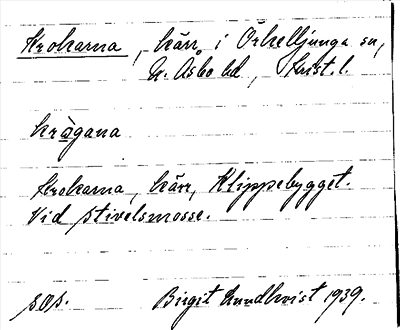 Krokarna, kärr i Örkelljunga sn,
N. Åsbo hd, Krist. l.
krågana
Krokarna, kärr, Klippebygget.
Vid Stivelsmosse.
sOs. Birgit Lundkvist 1939.